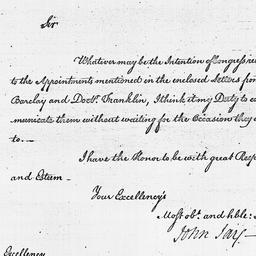 Sir
Whatever may be the Intention of Congress
to the Appointments mentioned in the enclosed Letters from
Barclay and Doct.r Franklin, I think it my Duty to
municate them without waiting for the Occasion they
to. —
I have the Honor to be with great
and Esteem —
Your Excellency's
Most ob.t and hble:
John Jay —
Excellency